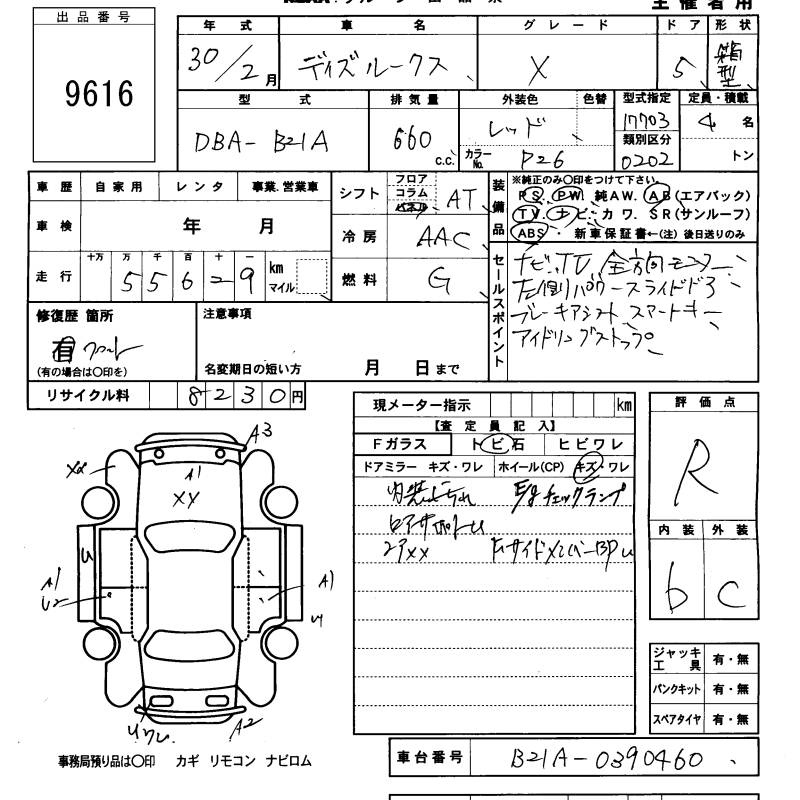 主催者用
出品番号
9616
年式 車名 グレード ドア 形状
30/2月 ディズルークス X 5 箱型
型式 排気量 外装色 色替 型式指定 定員・積載
DBA- B21A 660 c.c. レッド 17703 4名
カラーNo. P26 類別区分 0202 トン
車歴 自家用 レンタ 事業.営業車
車検 年 月
走行 十万 万 千 百 十 一
5 5 6 2 9 km マイル
シフト フロア コラム パネル AT
冷房 AAC
燃料 G
装備品 ※純正のみ〇印をつけて下さい。
PS. PW. 純AW. AB(エアバック)
TV. ナビ. カワ. SR(サンルーフ)
ABS 新車保証書←(注) 後日送りのみ
セールスポイント
ナビ、TV 全方向モニター
左側パワースライドドア
ブレーキアシスト スマートキー
アイドリングストップ
修復歴 箇所
有
(有の場合は〇印を)
注意事項
名変期日の短い方 月 日まで
リサイクル料 8230円
現メーター指示 km
【査定員記入】
Fガラス トビ石 ヒビワレ
ドアミラー キズ・ワレ ホイール(CP) キズ・ワレ
内装よごれ E/gチェックランプ
リアXX
評価点
R
内装 外装
b C
A3
A1
XX
A1
U2
U
A1
A2
ジャッキ工具 有・無
パンクキット 有・無
スペアタイヤ 有・無
事務局預り品は〇印 カギ リモコン ナビロム
車台番号 B21A-0390460